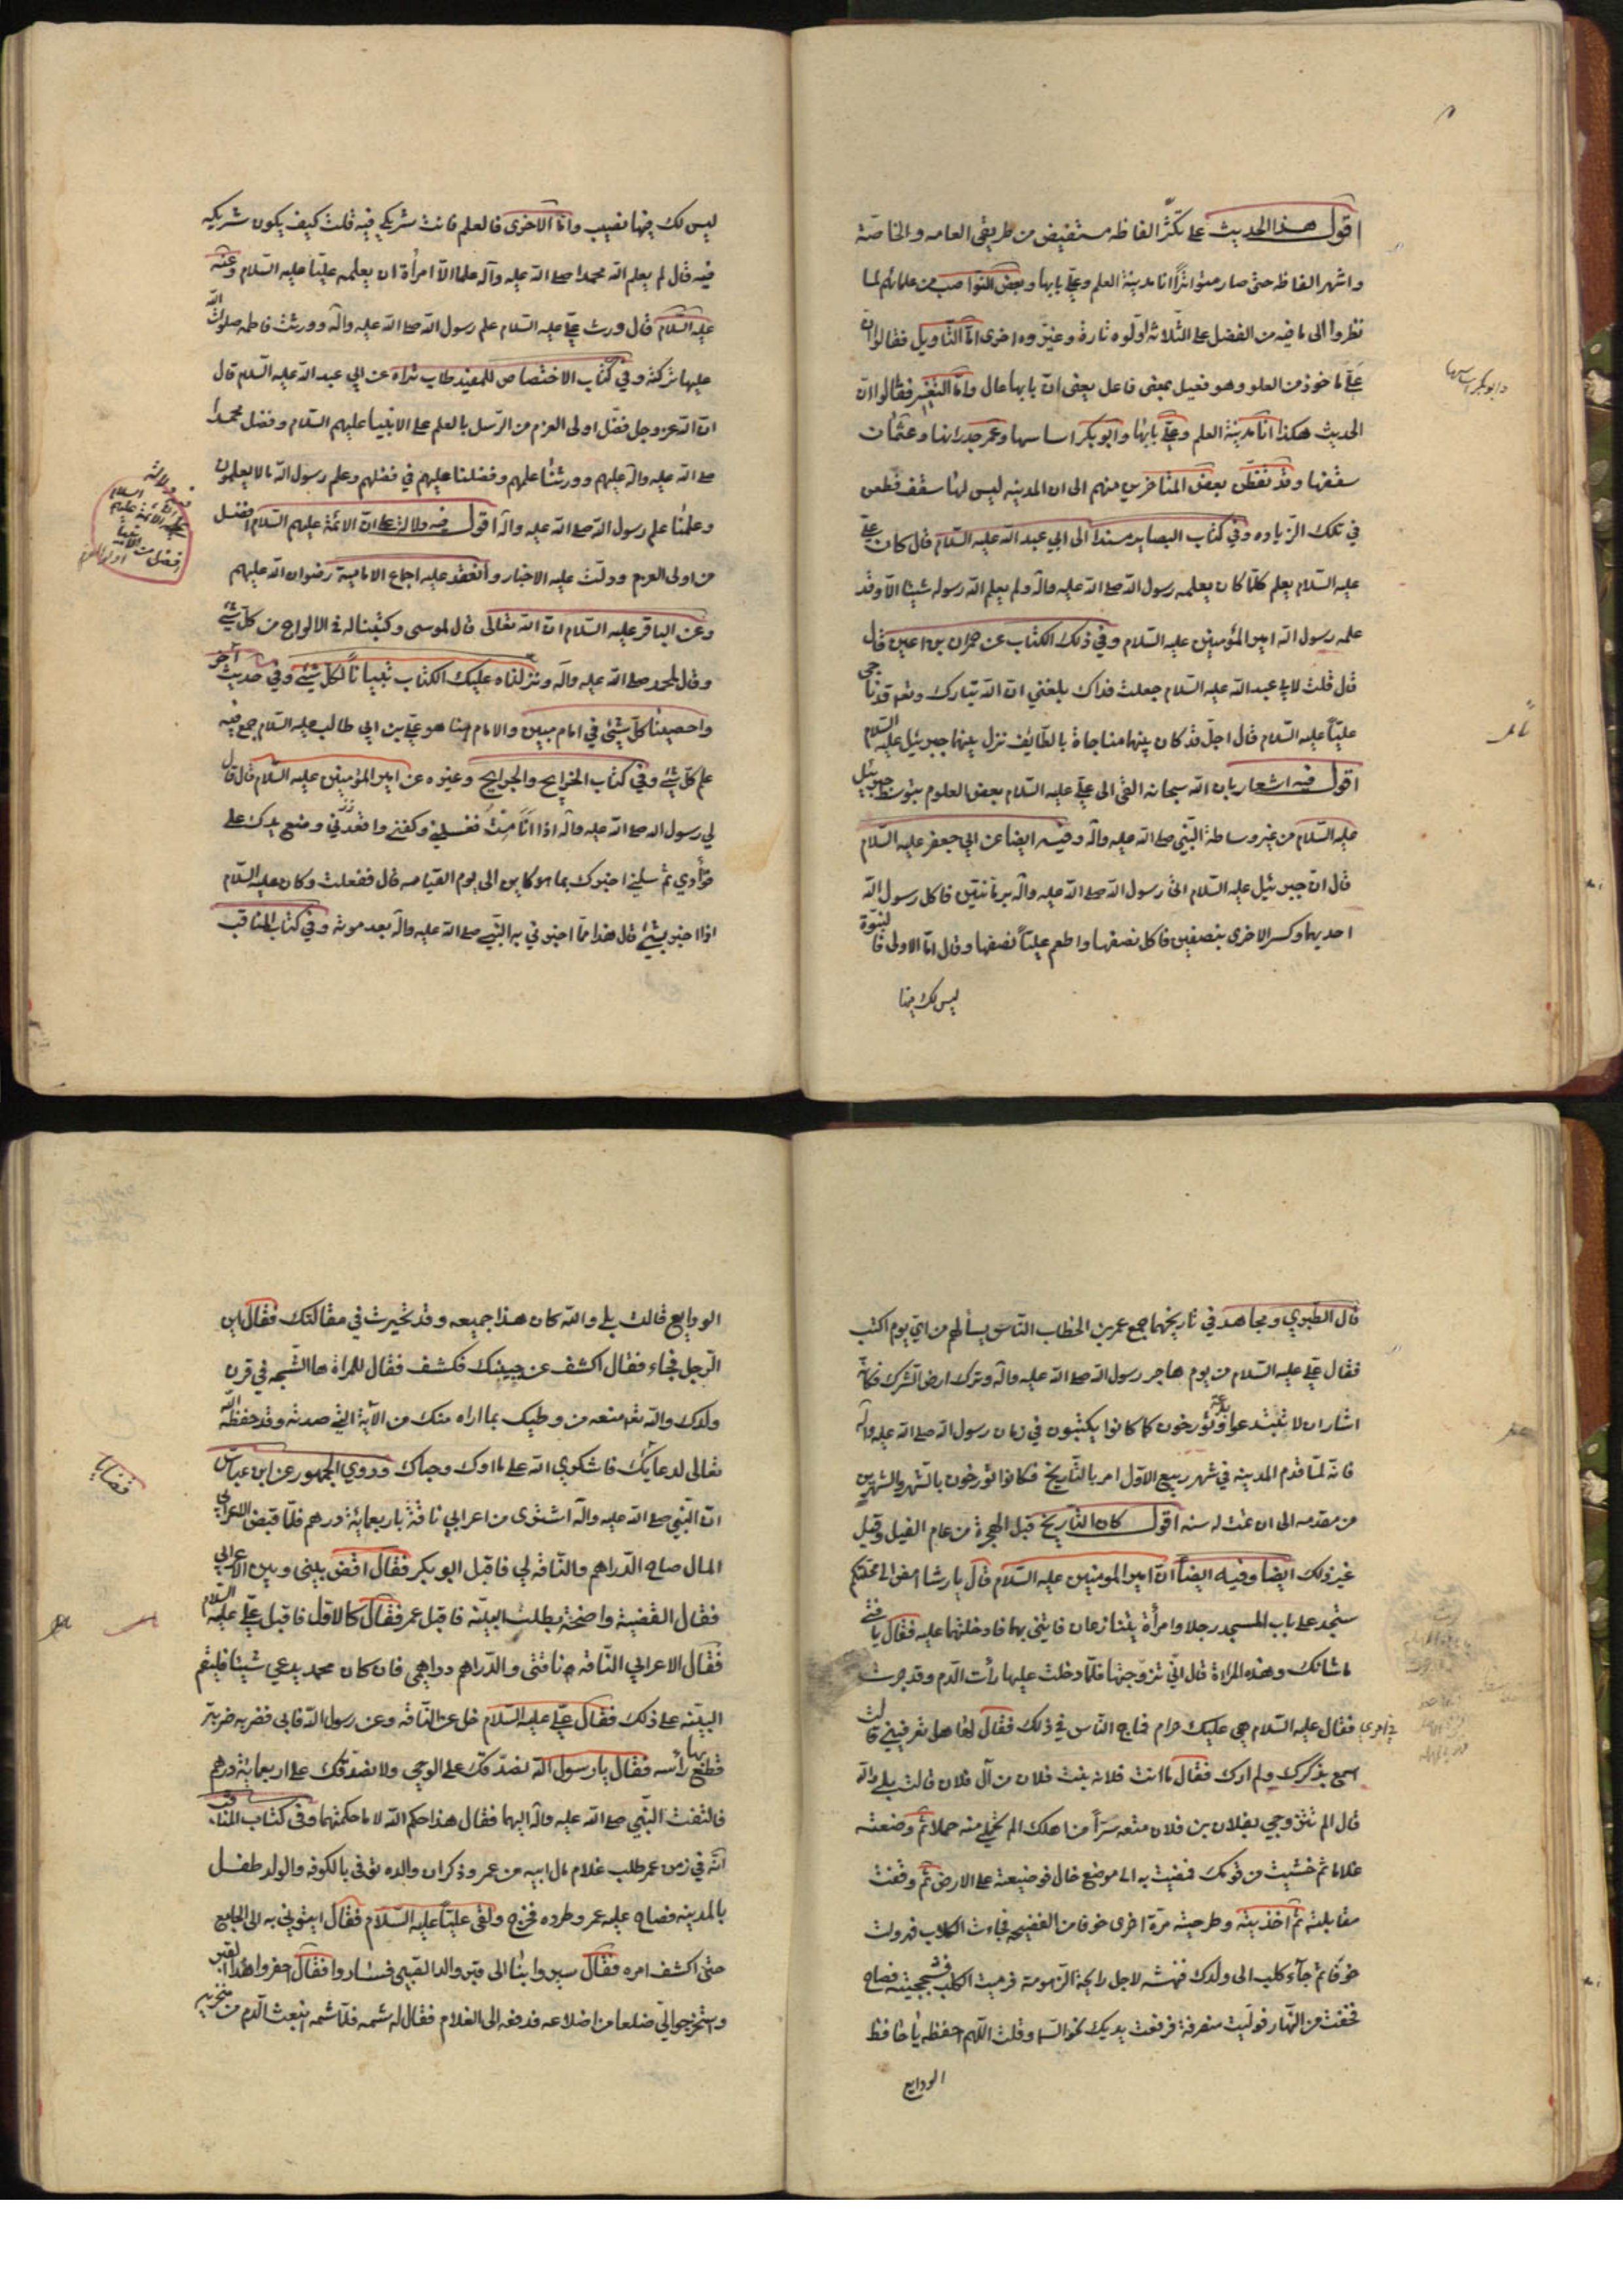 اقول هذا الحديث على تكثّر الفاظه مستفيض من طريقى العامه والخاصّة
واشهر الفاظه حتى صار متواتراً انا مدينة العلم وعلى بابها وبعض النواصب من علمائهم لما
نظروا الى ما فيه من الفضل على الثلاثه اوّلوه تارة وغيّروه اخرى امّا التأويل فقالوا انّ
عليّ ماخوذ من العلو وهو فعيل بمعنى فاعل يعنى انّ بابها عال وامّا التغيير فقالوا انّ
وابوبكر اساسها
الحديث هكذا انا مدينة العلم وعليّ بابها وابوبكر اساسها وعمر جدرانها وعثمان
سقفها وقد تفطّن بعض المتاخرين منهم الى ان المدينه ليس لها سقف فطعن
في تلك الزياده وفي كتاب البصاير مسندا الى ابي عبد الله عليه السّلام قال كان علىّ
عليه السّلام يعلم كلما كان يعلمه رسول الله صلى الله عليه وآله ولم يعلم الله رسوله شيئا الا وقد
علمه رسول الله امير المؤمنين عليه السّلام وفي ذلك الكتاب عن حمران بن اعين قال
قال قلت لابي عبد الله عليه السّلام جعلت فداك بلغني ان الله تبارك وتعه قد ناجى
عليّاً عليه السّلام قال اجل قد كان بينهما مناجاة بالطّايف نزل بينهما جبرئيل عليه السّلام
اقول فيه اشعار بان الله سبحانه القى الى علي عليه السّلام بعض العلوم بتوسط جبرئيل
عليه السّلام من غير وساطة النّبي صلى الله عليه وآله وفيه ايضا عن ابي جعفر عليه السّلام
قال انّ جبرئيل عليه السّلام اتى رسول الله صلى الله عليه وآله برمانتين فاكل رسول الله
احديهما وكسر الاخرى بنصفين فاكل نصفها واطعم عليّاً نصفها وقال امّا الاولى فالنبوّة
ليس لك فيها
ليس لك فيها نصيب وامّا الاخرى فالعلم فانت شريكي فيه قلت كيف يكون شريكه
فيه قال لم يعلم الله محمدا صلى الله عليه وآله علما الا امراه ان يعلمه عليّاً عليه السّلام وعنه
عليه السّلام قال ورث عليّ عليه السّلام علم رسول الله صلى الله عليه وآله وورثت فاطمه صلوات الله
عليها تركته وفي كتاب الاختصاص للمفيد طاب ثراه عن ابي عبد الله عليه السّلام قال
انّ الله عز وجل فضّل اولى العزم من الرّسل بالعلم على الانبياء عليهم السّلام وفضل محمداً
صلى الله عليه وآله عليهم وورثنا علمهم وفضلنا عليهم في فضلهم وعلم رسول الله ما لا يعلمون
وعلمنا علم رسول الله صلى الله عليه وآله اقول فيه دلالة على انّ الائمّة عليهم السّلام افضل
من اولى العزم ودلّت عليه الاخبار وانعقد عليه اجماع الامامية رضوان الله عليهم
وعن الباقر عليه السّلام انّ الله تعالى قال لموسى وكتبنا له في الالواح من كل شئ
وقال لمحمد صلى الله عليه وآله ونزلناه عليك الكتاب تبياناً لكل شئ وفي حديث آخر
واحصيناه كلّ شئ في امام مبين والامام هنا هو علي بن ابي طالب عليه السّلام جمع فيه
علم كل شئ وفي كتاب الخرايج والجرايح وغيره عن امير المؤمنين عليه السّلام قال قال
لي رسول الله صلى الله عليه وآله اذا انا متّ فغسلني وكفني واقعدني وضع يدك على
فؤادي ثم سلني اخبرك بما هو كاين الى يوم القيامه قال ففعلت وكان عليه السّلام
اذا اخبر بشئ قال هذا ممّا اخبرني به النّبي صلى الله عليه وآله بعد موته وفي كتاب المناقب
قال الطبري ومجاهد في تاريخهما جمع عمر بن الخطاب الناس يسألهم من اي يوم اكتب
فقال علي عليه السّلام من يوم هاجر رسول الله صلى الله عليه وآله وترك ارض الشرك فكانه
اشار ان لا تبتدعوا وتؤرخون كما كانوا يكتبون في زمان رسول الله صلى الله عليه وآله
فانه لمّا قدم المدينه في شهر ربيع الاوّل امر بالتّاريخ فكانوا يؤرخون بالشهر والشهرين
من مقدمه الى ان تمت له سنه اقول كان التّاريخ قبل الهجرة من عام الفيل وقيل
غير ذلك ايضا وفيه ايضاً انّ امير المومنين عليه السّلام قال يا رشا امض الى محلتكم
ستجد على باب المسجد رجلا وامرأة يتنازعان فائتني بهما فادخلتهما عليه فقال يا فتى
ما شانك وهذه المراة قال اني تزوّجتها فلمّا دخلت عليها رأت الدّم وقد حرت
فقال عليه السّلام هي عليك حرام فماج النّاس في ذلك فقال لها هل تعرفيني قالت
اسمع بذكرك ولم ارك فقال ما انت فلانه بنت فلان من آل فلان قالت بلى والله
قال الم تتزوجي بفلان بن فلان متعه سرّاً من اهلك الم تحملي منه حملا ثم وضعته
غلاما ثم خشيت من قومك فمضيت به الى موضع خال فوضعيته على الارض ثم وقفت
مقابلته ثم اخذتيه وطرحتيه مرّة اخرى خوفا من الفضيحه فجاءت الكلاب فهرولت
خوفا ثم جآء كلب الى ولدك فنهشه لاجل رايحة الزهومة فرميت الكلب فشججتيه فصاح
فخفت من النّهار فولّيت منصرفة فرفعت يديك نحو السّما وقلت اللّهم احفظه يا حافظ
الودايع
الودايع قالت بلى والله كان هذا جميعه وقد تحيرت في مقالتك فقال اين
الرّجل فجاء فقال اكشف عن جبينك فكشف فقال للمراة ها الشّجه في قرن
ولدك والله تعه منعه من وطيك بما اراه منك من الآية التي صدته وقد حفظه الله
تعالى لدعائك فاشكري الله على ما اولاك وحباك وروي الجمهور عن ابن عباس
قضايا
انّ النّبي صلى الله عليه وآله اشترى من اعرابي ناقة باربعمائة درهم فلمّا قبض الاعرابي
المال صاح الدّراهم والنّاقه لي فاقبل ابو بكر فقال اقض بيني وبين الاعرابي
فقال القضية واضحة يطلب البيّنه فاقبل عمر فقال كالاوّل فاقبل علي عليه السّلام
فقال الاعرابي النّاقه ناقتى والدّراهم دراهمي فان كان محمد يدعي شيئا فليقم
البيّنه على ذلك فقال علي عليه السّلام خل عن النّاقه وعن رسول الله فابى فضربه ضربة
قطع بها رأسه فقال يا رسول الله نصدقك على الوحي ولا نصدّقك على اربعمائة درهم
فالتفت النّبي صلى الله عليه وآله اليهما فقال هذا حكم الله لا ما حكمتما وفي كتاب المناقب
انّه في زمن عمر طلب غلام مال ابيه من عمر وذكر ان والده توفى بالكوفه والولد طفل
بالمدينه فصاح عليه عمر وطرده فخرج ولقى عليّاً عليه السّلام فقال ايتوني به الى الجامع
حتى اكشف امره فقال سيروا بنا الى قبر والد الصّبي فساروا فقال احفروا هذا القبر
واستخرجوا لي ضلعا من اضلاعه فدفعه الى الغلام فقال له شمه فلمّا شمه انبعث الدّم من منخريه